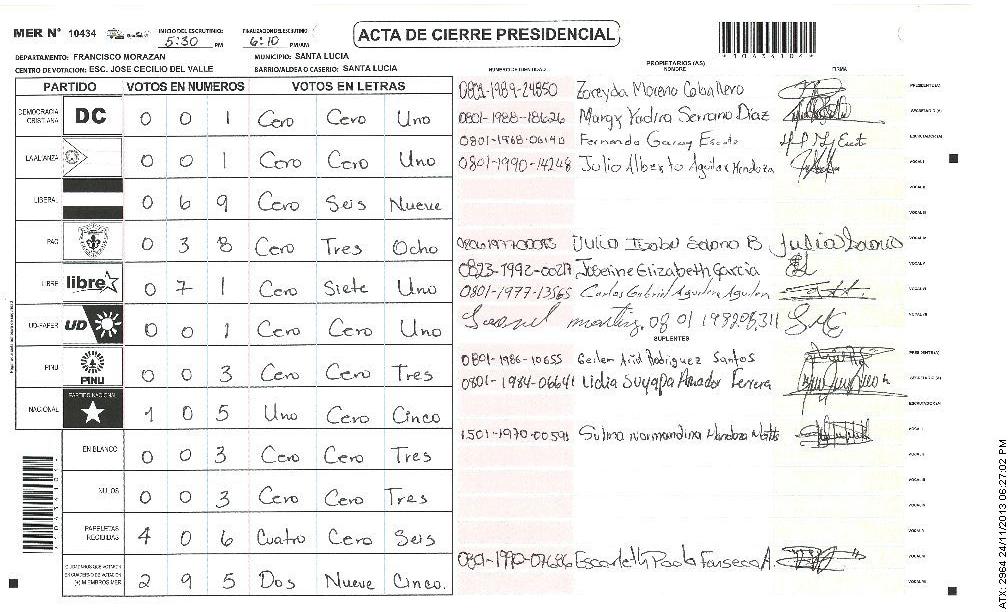 MER N° 10434 INICIO DEL ESCRUTINIO: 5:30 PM FINALIZACION DEL ESCRUTINIO 6:10 PM/AM
ACTA DE CIERRE PRESIDENCIAL
*10434102*
DEPARTAMENTO: FRANCISCO MORAZAN MUNICIPIO: SANTA LUCIA
CENTRO DE VOTACION: ESC. JOSE CECILIO DEL VALLE BARRIO/ALDEA O CASERIO: SANTA LUCIA
PARTIDO VOTOS EN NUMEROS VOTOS EN LETRAS
DEMOCRACIA CRISTIANA DC 0 0 1 Cero Cero Uno
LA ALIANZA 0 0 1 Cero Cero Uno
LIBERAL 0 6 9 Cero Seis Nueve
PAC 0 3 8 Cero Tres Ocho
LIBRE libre 0 7 1 Cero Siete Uno
UD-FAPER UD 0 0 1 Cero Cero Uno
PINU PINU 0 0 3 Cero Cero Tres
NACIONAL PARTIDO NACIONAL 1 0 5 Uno Cero Cinco
EN BLANCO 0 0 3 Cero Cero Tres
NULOS 0 0 3 Cero Cero Tres
PAPELETAS RECIBIDAS 4 0 6 Cuatro Cero Seis
CIUDADANOS QUE VOTARON EN CUADERNO DE VOTACION (+) MIEMBROS MER 2 9 5 Dos Nueve Cinco.
PROPIETARIOS (AS)
NUMERO DE IDENTIDAD NOMBRE FIRMA
0801-1989-24850 Zoreyda Moreno Caballero PRESIDENTE(A)
0801-1988-18626 Margy Yadira Serrano Diaz SECRETARIO(A)
Fernando Garay Escoto ESCRUTADOR(A)
0801-1990-14248 Julio Alberto Aguilar Mendoza VOCAL I
Julia Izabel
0823-1992-00217 Joseline Elizabeth Garcia VOCAL V
0801-1977-13565 Carlos Gabriel Aguilera Aguilera
SUPLENTES
0801-1986-10655 Geilen Arid Rodriguez Santos PRESIDENTE(A)
0801-1984-06641 Lidia Suyapa Amador Ferrera SECRETARIO(A)
ESCRUTADOR(A)
1501-1970-00591 Sulma Normandina Mendoza VOCAL I
Paola Fonseca A.
ATX: 2964 24/11/2013 06:27:02 PM